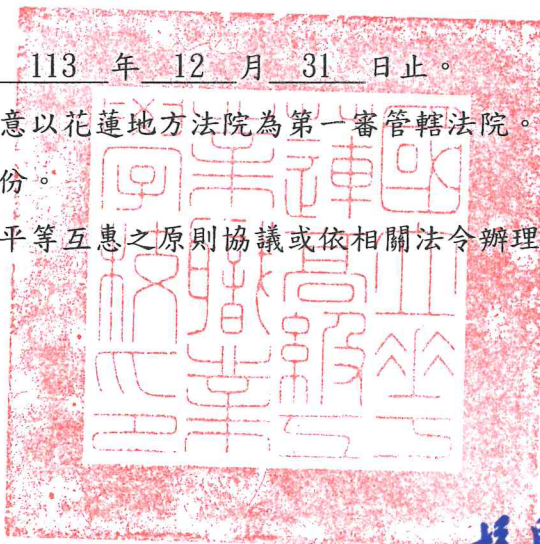 113 年 12 月 31 日止。
意以花蓮地方法院為第一審管轄法院。
份。
平等互惠之原則協議或依相關法令辦理
國立花蓮高級工業職業學校